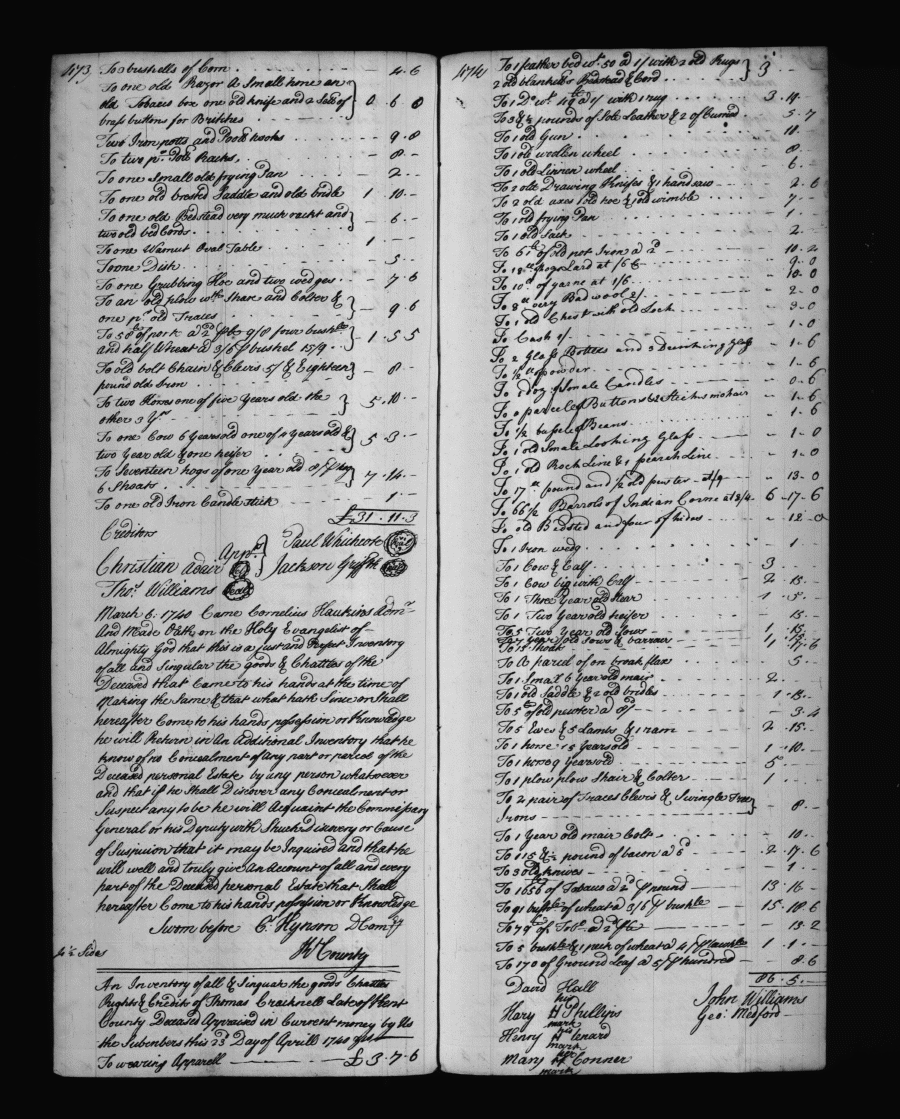 473
To 3 bushells of Corn . - 4 . 6
To one old Razor a Small hone an
old Tobacco box one old knife and 2 Setts of
brass buttons for Britches . . . } 0 . 6 . 0
Two Iron potts and Pott hooks . . . - 9 . 8
To two pr. Pott Racks . . . - 8 . -
To one Small old frying Pan . . . - 2 . -
To one old Saddle and old bridle 1 . 10 . -
To one old Bedstead very much rackt and
two old bed Cords . . . } - 6 . -
To one Warnut Oval Table . . . 1 . - -
To one Dish . . . - 5 . -
To one Grubbing Hoe and two wedges . . - 7 . 6
To an old plow wth Share and Colter &
one pr. old Traces . . . } - 9 . 6
To 58 lb of pork a 2d 9/8 four bushls
and half Wheat a 3/6 bushel 15/9 . . } - 1 . 5 . 5
To old bolt Chain & Clevis 5/ & Eighteen
pound old Iron . . . } - 8 . -
To two Horses one of five Years old the
other 3 Yrs } 5 . 10 . -
To one Cow 6 Years old one of 4 years old &
two Year old & one heifer . . . } 5 . 3 . -
To Seventeen hogs of one year old
6 Shoats . . . } 7 . 14 . -
To one old Iron Candlestick . . . 1 . -
£31 . 11 . 3
Creditors
Christian adair
Thos. Williams Seal
Apprs. } Paul Whichcote Seal
Jackson Griffith Seal
March 6. 1740 Came Cornelius Haukins Admr
And Made Oath on the Holy Evangelist of
Almighty God that this is a just and Perfect Inventory
of all and Singular the goods & Chattles of the
Deceased that Came to his hands at the time of
Making the Same & that what hath Since or Shall
hereafter Come to his hands possession or Knowledge
he will Return in An Additional Inventory that he
know of no Concealment of any part or parcel of the
Deceased personal Estate by any person whatsoever
and that if he Shall Discover any Concealment or
Suspect any to be he will Acquaint the Commissary
General or his Deputy with Such Discovery or Cause
of Suspicion that it may be Inquired and that he
will well and truly give An Account of all and every
part of the Deceased personal Estate that Shall
hereafter Come to his hands possession or Knowledge
Sworn before C. Hynson D Comry
Kt County
4½ Sides
An Inventory of all & Singular the goods Chattles
Rights & Credits of Thomas Cracknell Late of Kent
County Deceased Appraised in Current money by Us
the Subcribers this 23d Day of Aprill 1740
To wearing Apparell - £ 3 . 7 . 6
474
To 1 feather bed wt. 50 a 1/ with 2 old Rugs
2 old blankets Bedstead & Cord . . . } 3 - -
To 1 Do wt. 49 a 1/ with 1 rug . . . 3 . 19 . -
To 3 & ½ pounds of Sole Leather & 2 of Curried . 5 . 7
To 1 old Gun . . . 10 . -
To 1 old wollen wheel . . . 8 . -
To 1 old Linnen wheel . . . 6 . -
To 2 old Drawing Knifes & 1 hand saw . . 2 . 6
To 2 old axes 1 old hoe & 1 old wimble . . 7 . -
To 1 old frying Pan . . . 1 . -
To 1 old Sack . . . 2 . -
To 61 lb of old pot Iron a 2d . . 10 . 2
To 18 lb hogs Lard at /6 . . 9 . 0
To 10 lb of yarne at 1/6 . . 10 . 0
To 8 lb very Bad wool 2/ . . 2 . 0
To 1 old Chest with old Lock . . 3 . 0
To Cash 1/ . . . 1 . 0
To 2 Glass Bottles and 3 Drinking glass . 1 . 6
To ½ lb powder . . . 1 . 6
To 1 doz of Smale Candles . . 0 . 6
To a parcele of Buttons & 2 Sticks mohair . 1 . 6
To ½ bussel of Beans . . 1 . 6
To 1 old Smale Looking Glass . . 1 - 0
To 1 old Rock Line & 1 pearch Line . . 1 - 0
To 17 lb pound and ½ old pewter at /9 . - 13 - 0
To 66½ Barrols of Indian Corne at 6 - 17 - 6
To old Bedsted and four old hides . . - 12 - 0
To 1 Iron wedg . . . 1 . -
To 1 Cow & Calf . . . 3 - -
To 1 Cow big with Calf . . 2 . 15 . -
To 1 Three Year old Stear . . 1 . 5 . -
To 1 Two Year old heifer . . 15 . -
To 5 Two Year old Sows . . 1 . 15 . -
To year old Sows & barrow - 1 .
To 13 Shoats 17 . 6
To A parcel of on broak flax . . 5 . -
To 1 Small 6 year old mair . . 2 . -
To 1 old Saddle & 2 old bridles . . 1 . 13 . -
To 5 lb of old pewter a 8d . . - 3 . 4
To 5 Ewes & 5 Lambs & 1 ram . . 2 . 15 . -
To 1 horse 15 Years old . . 1 . 10 . -
To 1 horse 9 Years old . . 5 . -
To 1 plow plow Shair & Colter . . 1 . -
To 2 pair of Traces Clevis & Swingle Tree
Irons . . . } 8 . -
To 1 Year old mair Colt . . 10 . -
To 115 & ½ pound of bacon a 5d . 2 . 17 . 6
To 3 old knives . . . 1 . -
To 1656 of Tobaco a 2d pound . 13 . 16 . -
To 91 bushls of wheat a 3/6 bushle . 15 . 18 . 6
To 79 lb of Tobo a 2d . . 13 . 2
To 5 bushle & 1 peck of wheat a 4/ bushle 1 . 1 . -
To 170 of Ground Leaf a 5/ hundred - 8 . 6
86 . 5 . -
David Hall
his
Hary H Phillips
mark
his
Henry H Lenard
mark
her
Mary Conner
mark
John Williams
Geo: Medford